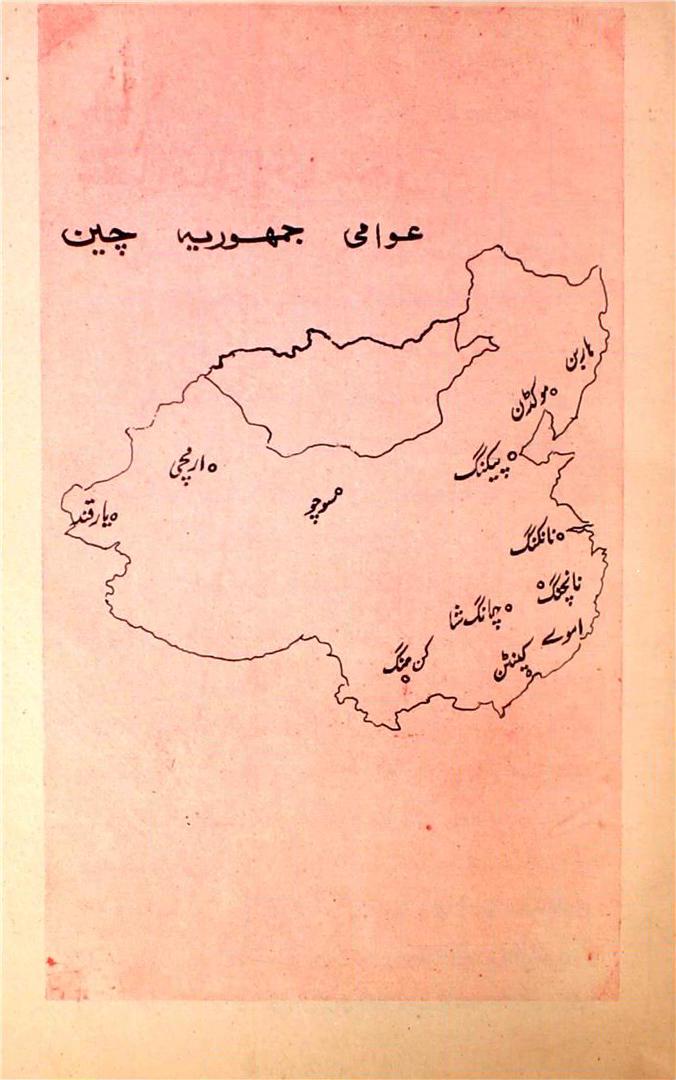 عوامی جمہوریہ چین
ہاربن
موکڈن
پیکنگ
ارمچی
سوچو
یارقند
نانکنگ
نانچنگ
چہانگ شا
اموے
کینٹن
کن منگ